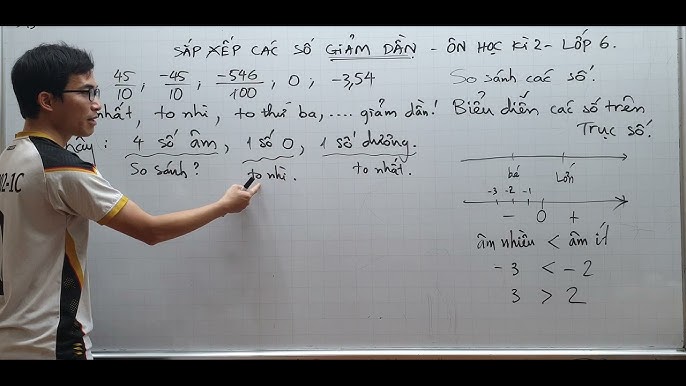 SẮP XẾP CÁC SỐ GIẢM DẦN - ÔN HỌC KÌ 2 - LỚP 6.
45/10 ; -45/10 ; -546/100 ; 0 ; -3,54
So sánh các số.
nhất, to nhì, to thứ ba, .... giảm dần!
Biểu diễn các số trên
Trục số.
thấy : 4 số âm, 1 số 0, 1 số dương.
So sánh? to nhì. to nhất.
bé Lớn
-3 -2 -1
- 0 +
âm nhiều < âm ít
-3 < -2
3 > 2
2-1C